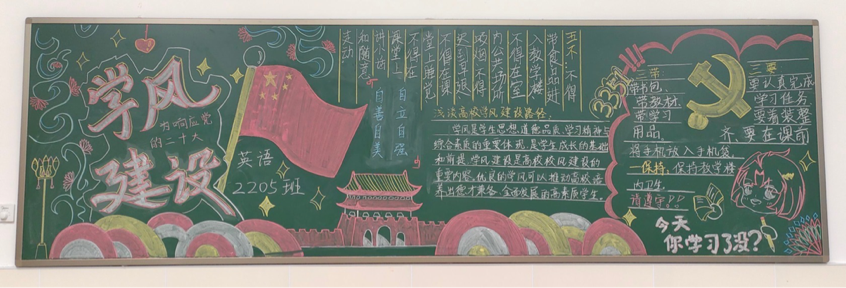 学风
建设
为响应党
的二十大
英语
2205班
五不:不得
带食品进
入教学楼
不得在室
内公共场所
吸烟不得
迟到早退
不得在课
堂上睡觉
不得在
课堂上
讲小话
和随意
走动
自立自强
自善自美
谈谈高校学风建设路径:
学风是学生思想道德品质、学习精神与
综合素质的重要体现,是学生成长的基础
和前提。学风建设是高校校风建设的
重要内容,优良的学风可以推动高校培
养出德才兼备、全面发展的高素质学生。
3351
三带
带书包,
带教材,
带学习
用品
三要
要认真完成
学习任务
要着装整
齐,要在课前
将手机放入手机袋
保持:保持教学楼
内卫生
请遵守!!
今天
你学习了没?